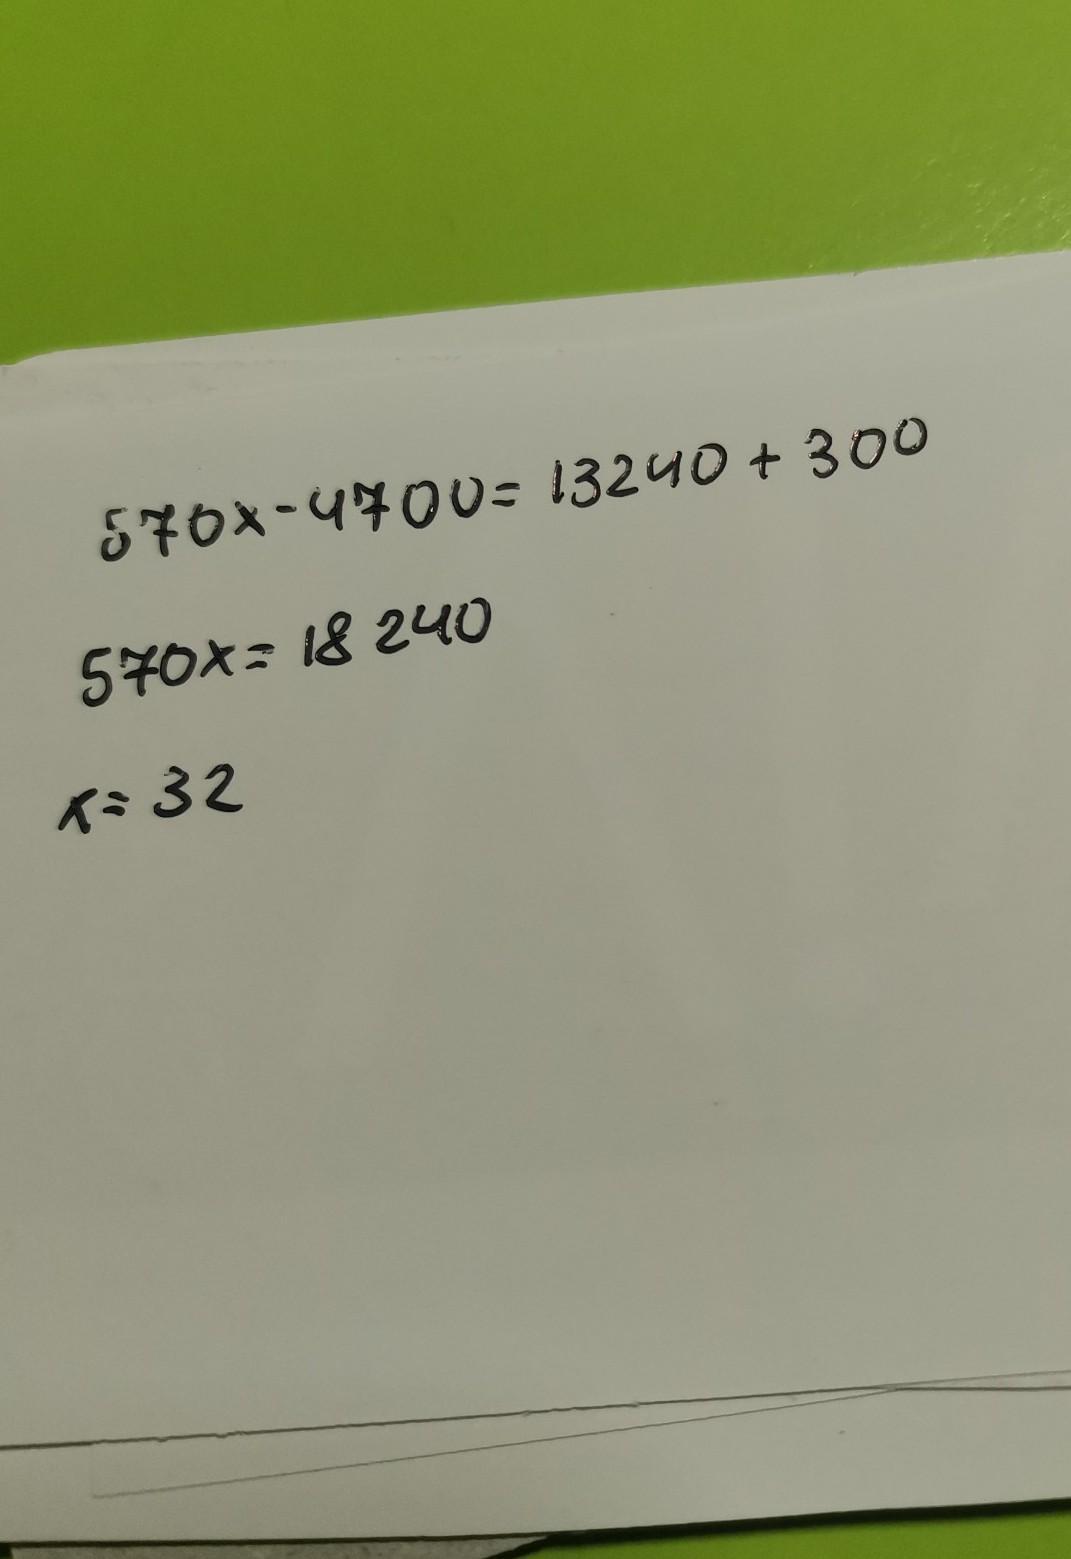 570x-4700=13240+300
570x=18 240
x=32